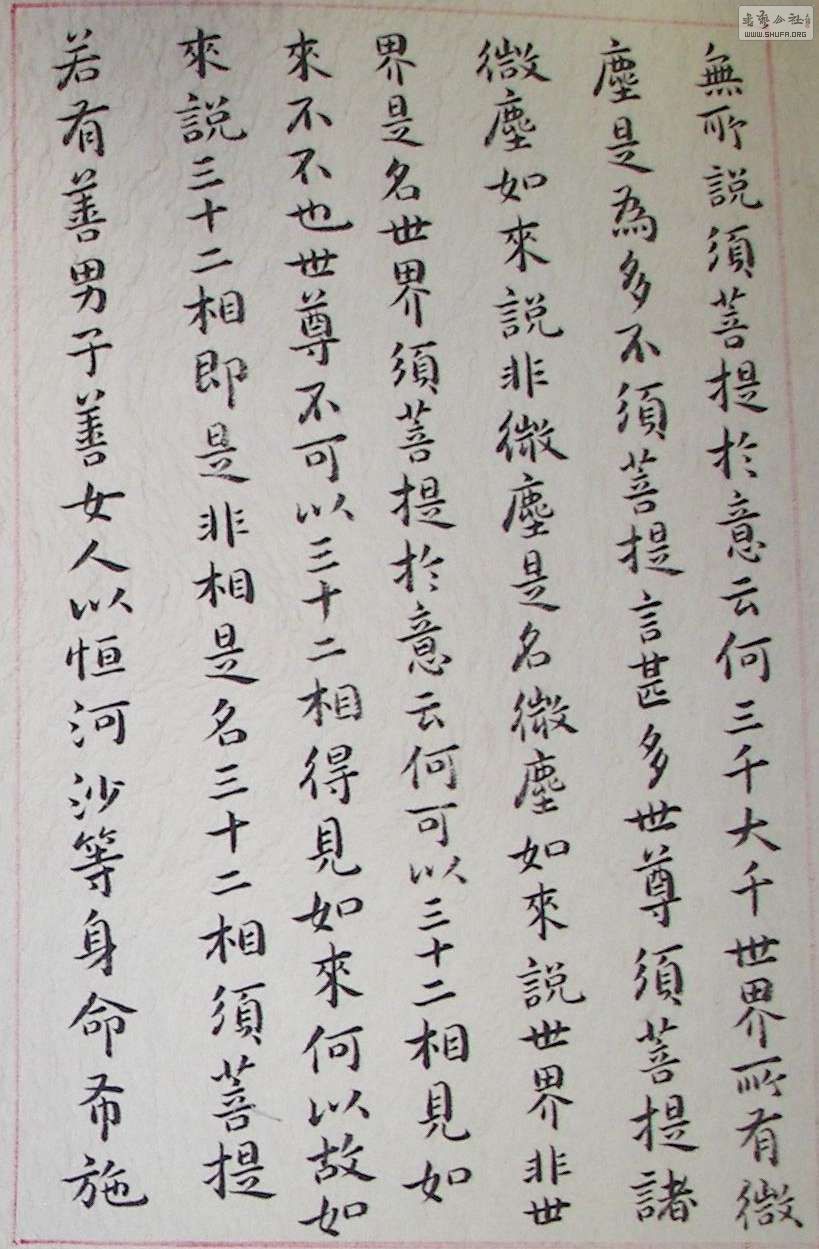 無所説須菩提於意云何三千大千世界所有微
塵是為多不須菩提言甚多世尊須菩提諸
微塵如來説非微塵是名微塵如來説世界非世
界是名世界須菩提於意云何可以三十二相見如
來不不也世尊不可以三十二相得見如來何以故如
來説三十二相即是非相是名三十二相須菩提
若有善男子善女人以恒河沙等身命布施
书艺公社
WWW.SHUFA.ORG